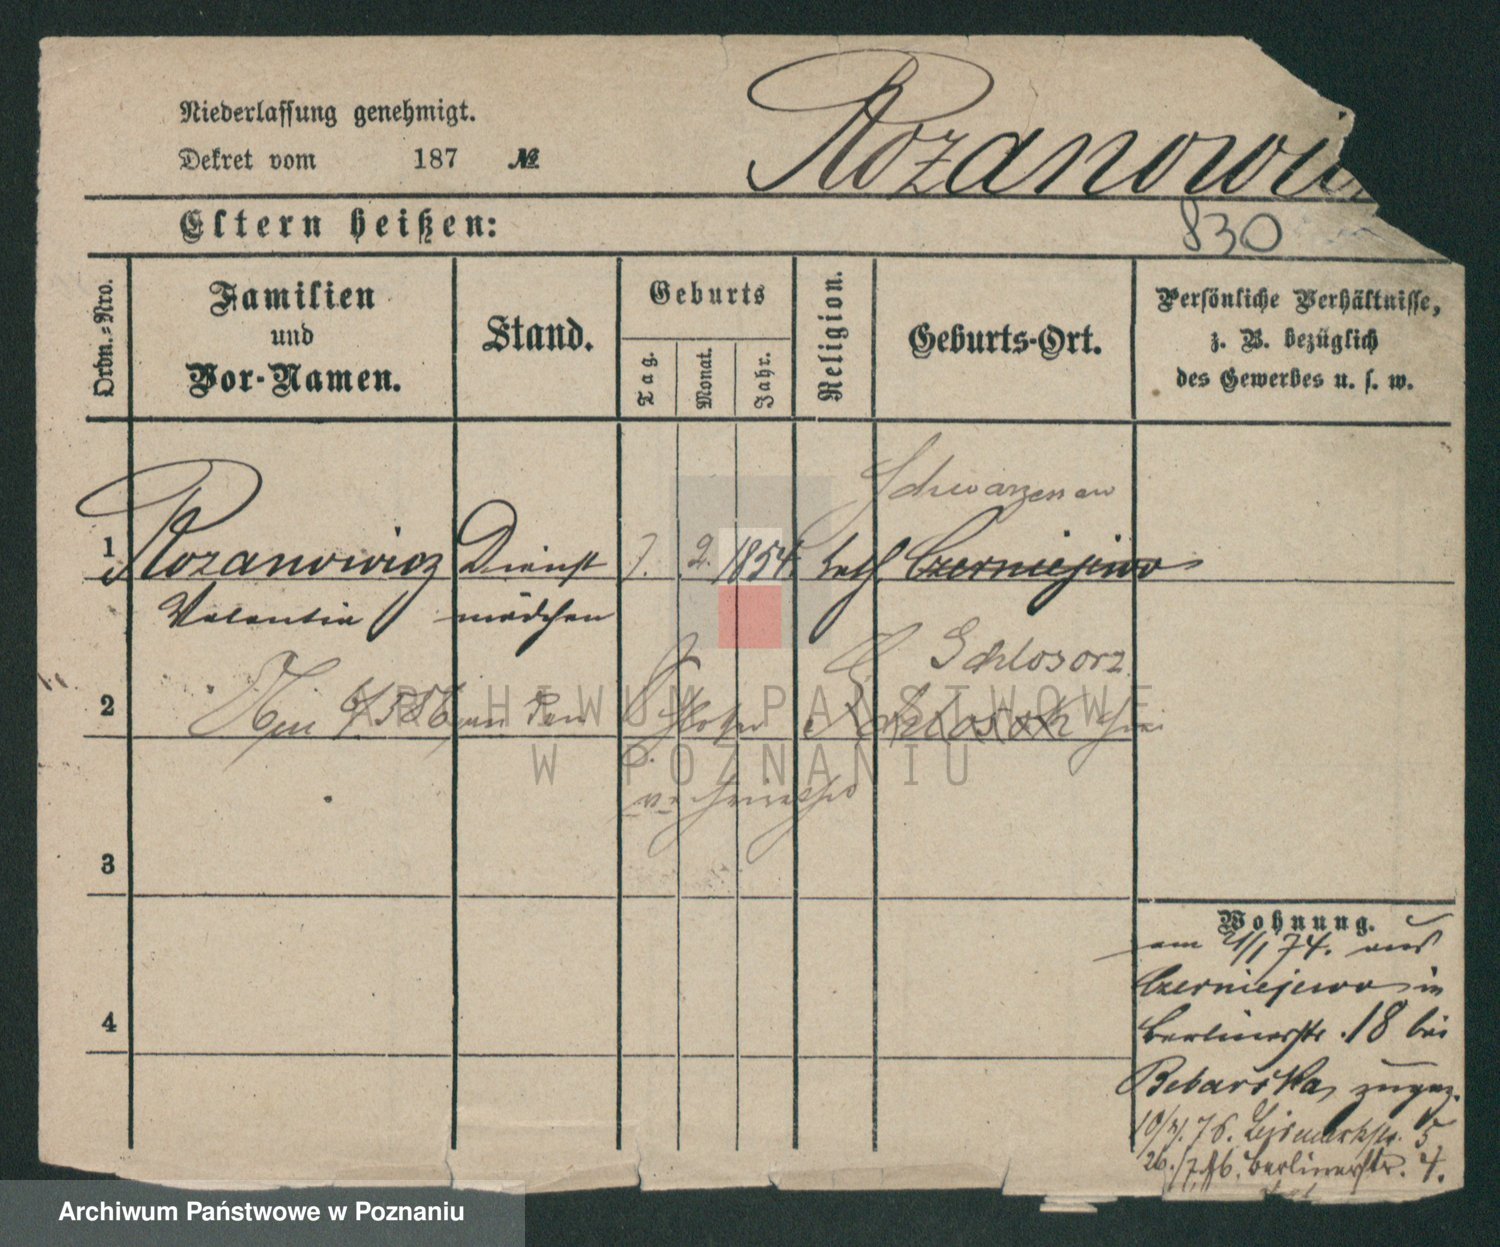 Niederlassung genehmigt.
Dekret vom 187 №
Rozanowi
Eltern heißen:
830
Ordn.-Nro.
Familien
und
Vor-Namen.
Stand.
Geburts
Tag.
Monat.
Jahr.
Religion.
Geburts-Ort.
Persönliche Verhältnisse,
z. B. bezüglich
des Gewerbes u. s. w.
Schwarzenau
1 Rozanowicz Dienst 7. 2. 1854. kath Czerniejewo
Valentia mädchen
Schlosorz
2 an den
3
Wohnung.
am 2/1 74. aus
Czerniejewo in
Berlinerstr. 18 bei
Bebarska zugez.
4
10/7. 76. 5.
26./7. 76. Berlinerstr. 4.
ARCHIWUM PAŃSTWOWE
W POZNANIU
Archiwum Państwowe w Poznaniu